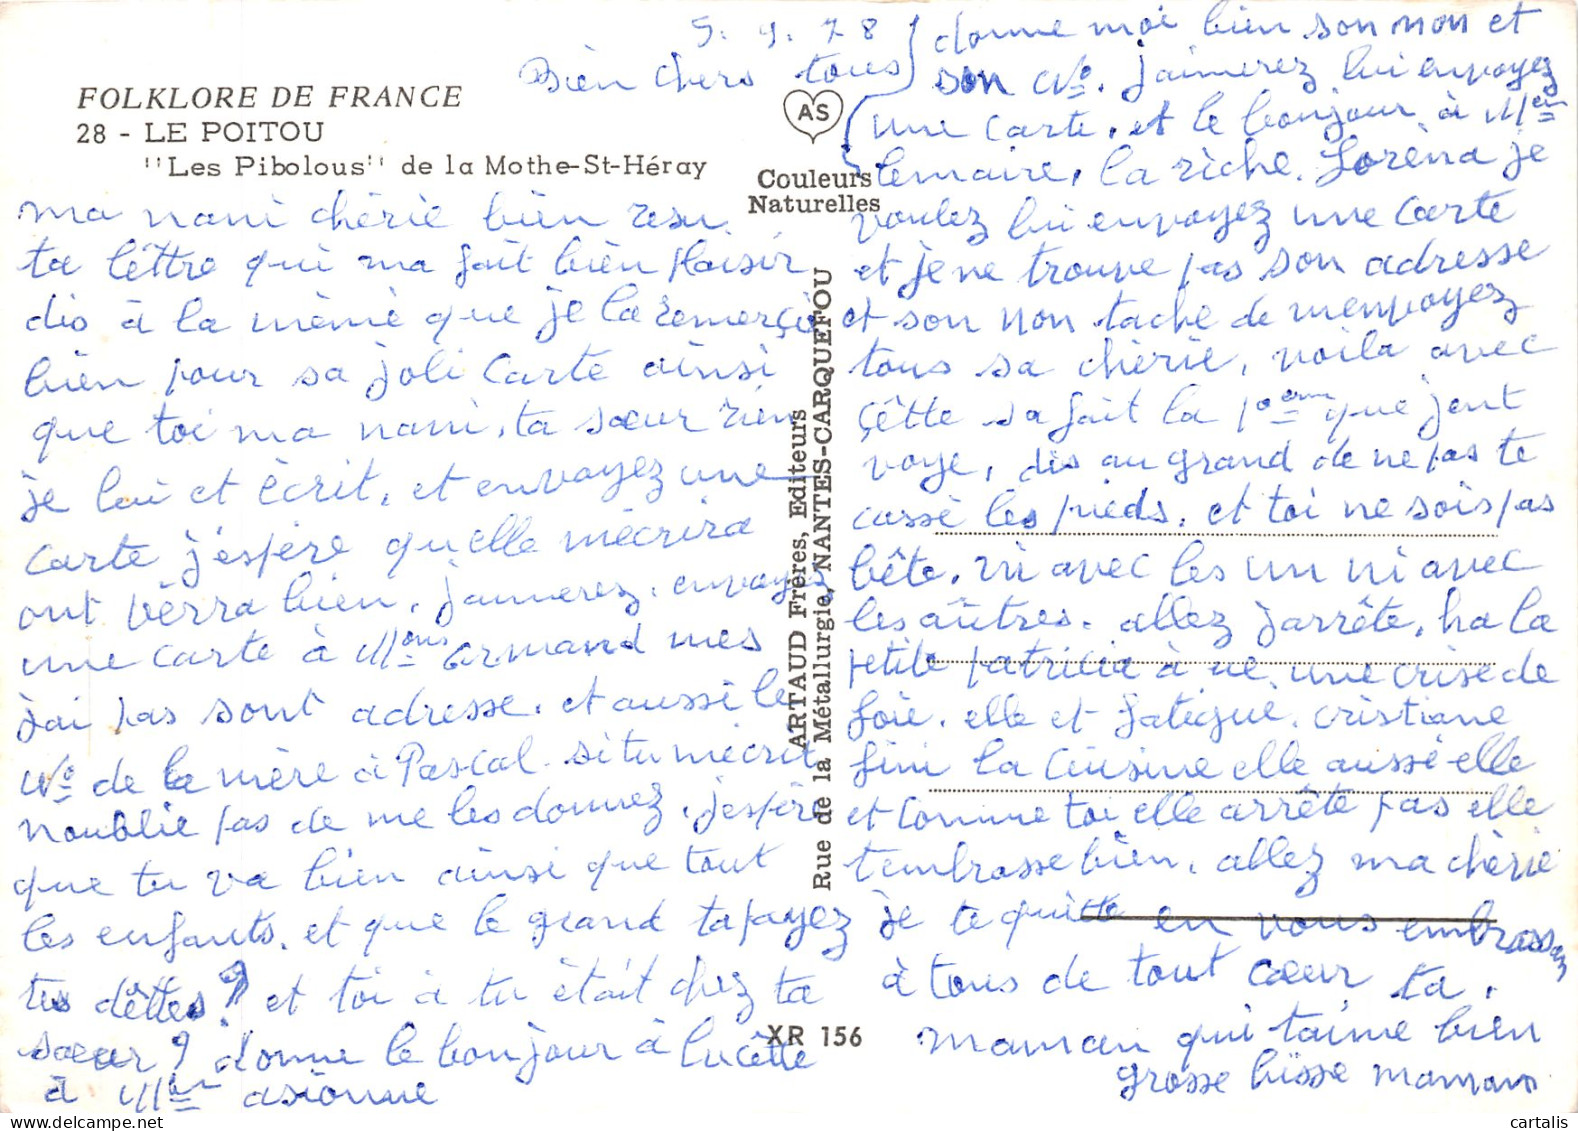 5.9.78
Bien chers tous
FOLKLORE DE FRANCE
28 - LE POITOU
"Les Pibolous" de la Mothe-St-Héray
AS
Couleurs
Naturelles
ma nani chèrie bien resu
ta lêttre qui ma fait bièn plaisir
dis à la mème que je la remerçi
bièn pour sa joli carte ainsi
que toi ma nani, ta sœur rien
je lui et ècrit, et envoyez une
carte j'espère qu'elle mècrira
ont vèrra bien, j'aimerez, envoyez
une carte à armand mes
jai pas sont adresse, et aussi le
No de la mère à Pascal si tu mècrit
noublie pas de me les donnez, jespère
que tu va bien ainsi que tout
les enfants, et que le grand ta payez
tes dêttes? et toi à tu ètait chez ta
sœur? donne le bonjour à lucètte
à asionne
ARTAUD Frères, Editeurs
Rue de la Métallurgie, NANTES-CARQUEFOU
XR 156
donne moi bien son non et
son No. jaimerez lui envoyez
une carte, et le bonjour à
lemaire, la riche. Lorèna je
voulez lui envoyez une carte
et je ne trouve pas son adresse
et son non tache de menvoyez
tous sa chèrie, voila avec
çêtte sa fait la que jent
voye, dis au grand de ne pas te
cassè les pieds, et toi ne sois pas
bête, ni avec les un ni avec
les aûtres. allez jarrête, ha la
petite patricia à ue, une crise de
foie, elle et fatiguè, cristiane
fini la cuisine elle aussi elle
et comme toi elle arrête pas elle
t'embrasse bien, allez ma chèrie
je te quitte en vous embrassan
à tous de tout cœur, ta
maman qui taime bien
grosse bisse maman